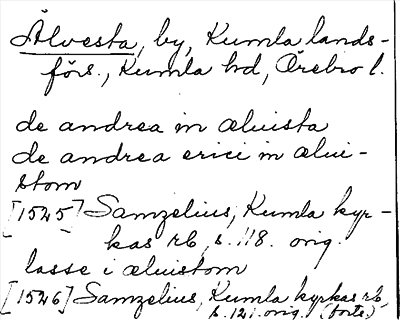 Älvesta, by, Kumla lands-
förs., Kumla hd, Örebro l.
de andrea in æluista
de andrea erici in ælui-
stom
[1545] Samzelius, Kumla kyr-
kas rb, s. 118. orig.
lasse i æluistom
[1546] Samzelius, Kumla kyrkas rb,
s. 121. orig. (forts.)